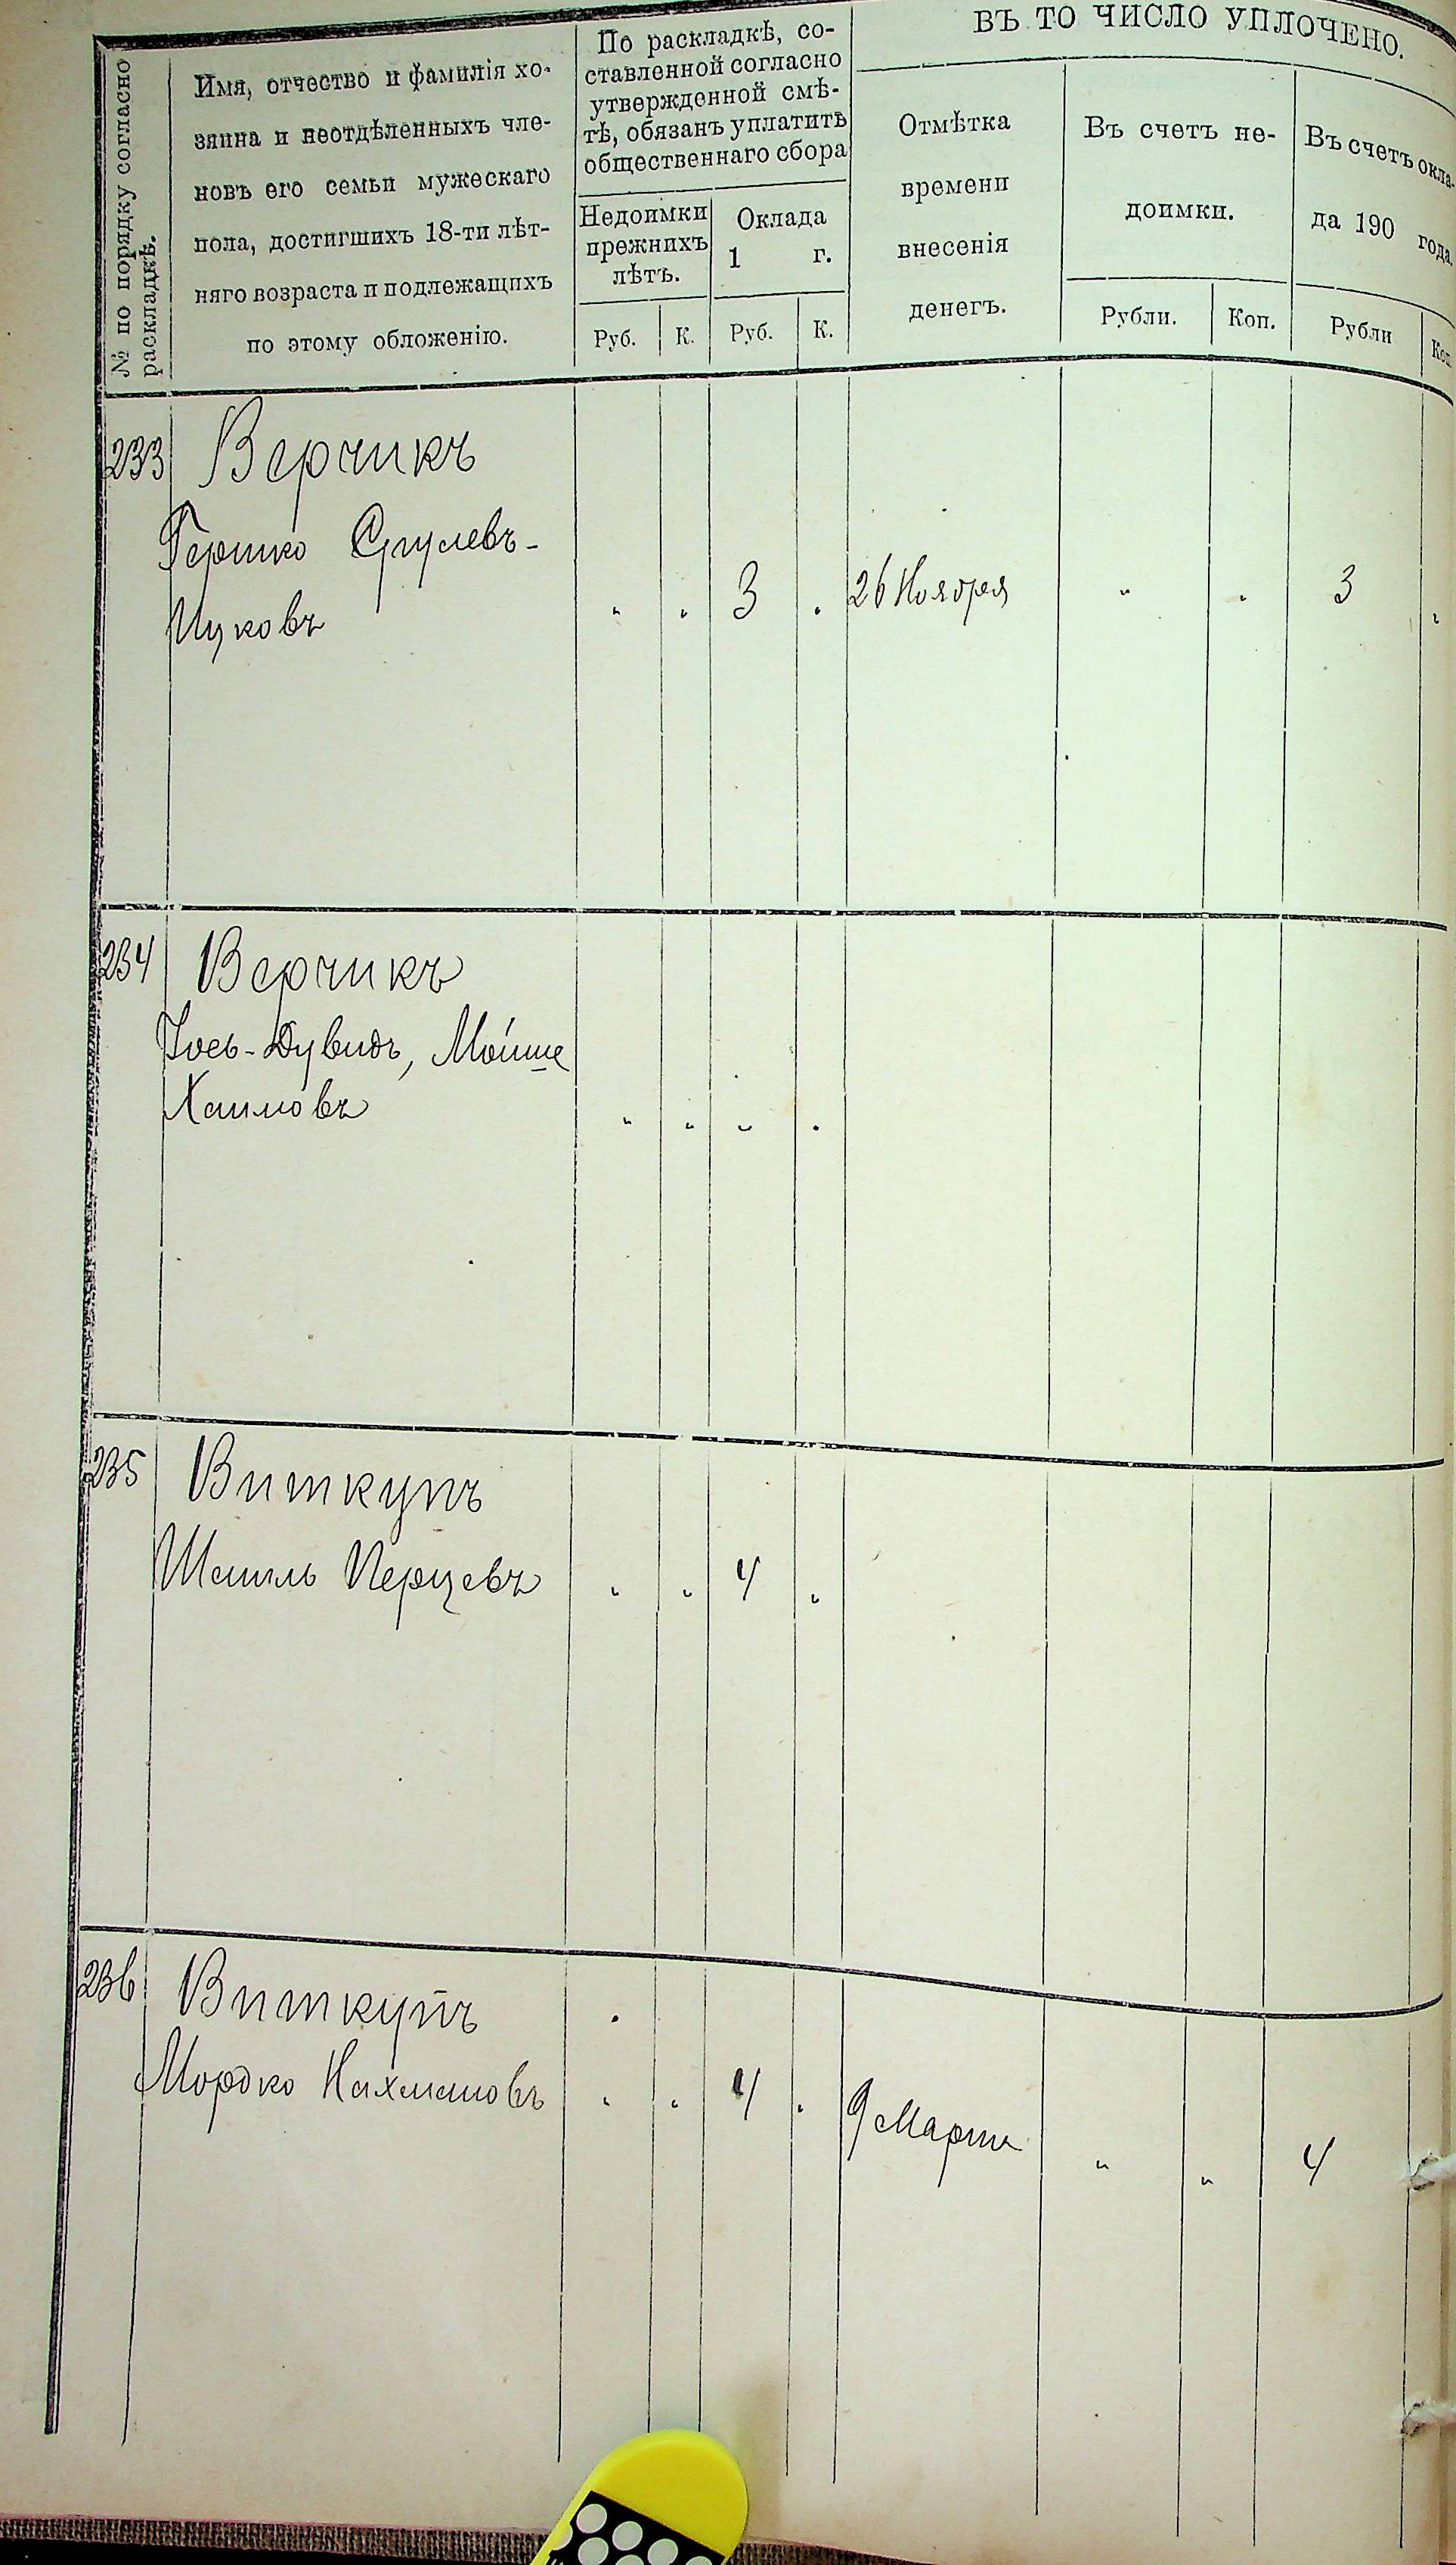 № по порядку согласно
раскладкѣ.
Имя, отчество и фамилія хо-
зяина и неотдѣленныхъ чле-
новъ его семьи мужескаго
пола, достигшихъ 18-ти лѣт-
няго возраста и подлежащихъ
по этому обложенію.
По раскладкѣ, со-
ставленной согласно
утвержденной смѣ-
тѣ, обязанъ уплатить
общественнаго сбора
Недоимки
прежнихъ
лѣтъ.
Оклада
1 г.
Руб. К. Руб. К.
ВЪ ТО ЧИСЛО УПЛОЧЕНО.
Отмѣтка
времени
внесенія
денегъ.
Въ счетъ не-
доимки.
Рубли. Коп.
Въ счетъ окла-
да 190 года.
Рубли Коп
233 Верчикъ
Гершко Срулевъ-
Ицковъ " " 3 " 26 Ноября " " 3 "
234 Верчикъ
Іось-Дувидъ, Мойше
Хаимовъ " " " "
235 Виткупъ
Шмиль Перцевъ " " 4 "
236 Виткупъ
Мордко Нахмановъ " " 4 " 9 Марта " " 4